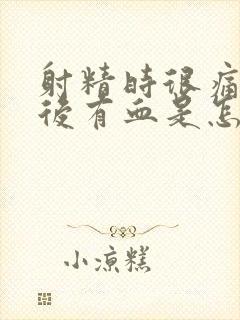 射精時很痛
後有血是怎
小涼糕